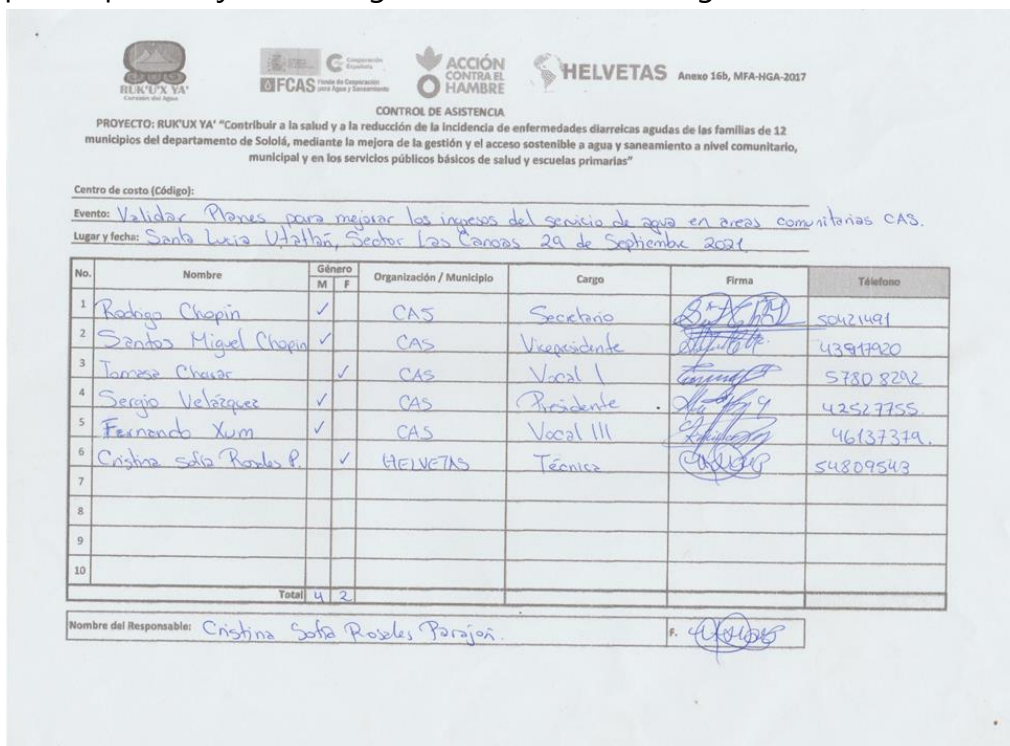 RUK'U'X YA'
Corazón del Agua
Cooperación Española
FCAS Fondo de Cooperación para Agua y Saneamiento
ACCIÓN CONTRA EL HAMBRE
HELVETAS Anexo 16b, MFA-HGA-2017
CONTROL DE ASISTENCIA
PROYECTO: RUK'UX YA' "Contribuir a la salud y a la reducción de la incidencia de enfermedades diarreicas agudas de las familias de 12
municipios del departamento de Sololá, mediante la mejora de la gestión y el acceso sostenible a agua y saneamiento a nivel comunitario,
municipal y en los servicios públicos básicos de salud y escuelas primarias"
Centro de costo (Código):
Evento: Validar Planes para mejorar los ingresos del servicio de agua en areas comunitarias CAS.
Lugar y fecha: Santa Lucia Utatlán, Sector Las Canoas 29 de Septiembre 2021
No. Nombre Género M F Organización / Municipio Cargo Firma Téléfono
1 Rodrigo Chopin ✓ CAS Secretario 50421491
2 Santos Miguel Chopin ✓ CAS Vicepresidente
3 Tomasa ✓ CAS Vocal I 5780 8292
4 Sergio Velázquez ✓ CAS Presidente 42527755.
5 Fernando Xum ✓ CAS Vocal III 46137379.
6 Cristina Sofía Rosales P. ✓ HELVETAS Técnica 54809543
7
8
9
10
Total 4 2
Nombre del Responsable: Cristina Sofía Rosales Parajón. F.